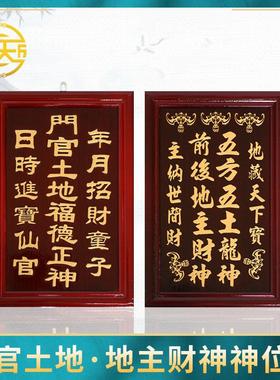 年月招財童子
門官土地福德正神
日時進寶仙官
地藏天下寶
五方五土龍神
前後地主財神
主納世間財
官土地·地主财神神位